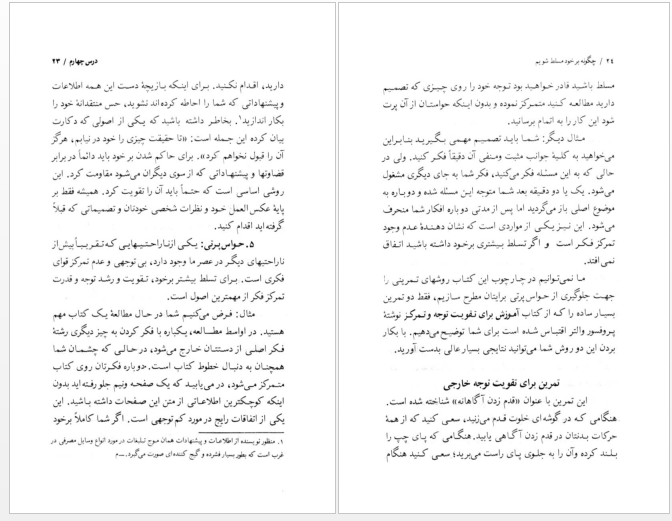 درس چهارم / ۲۳
دارید، اقدام نکنید. برای اینکه بازیچهٔ دست این همه اطلاعات
و پیشنهاداتی که شما را احاطه کرده‌اند نشوید، حس منتقدانهٔ خود را
بکار اندازید۱. بخاطر داشته باشید که یکی از اصولی که دکارت
بیان کرده این جمله است: «تا حقیقت چیزی را خود در نیابم، هرگز
آن را قبول نخواهم کرد». برای حاکم شدن بر خود باید دائماً در برابر
قضاوتها و پیشنهاداتی که از سوی دیگران می‌شود مقاومت کرد. این
روشی اساسی است که حتماً باید آن را تقویت کرد. همیشه فقط بر
پایهٔ عکس‌العمل خود و نظرات شخصی خودتان و تصمیماتی که قبلاً
گرفته‌اید اقدام کنید.
۵. حواس‌پرتی: یکی از ناراحتیهایی که تقریباً بیش از
ناراحتیهای دیگر در عصر ما وجود دارد، بی توجهی و عدم تمرکز قوای
فکری است. برای تسلط بیشتر برخود، تقویت و رشد توجه و قدرت
تمرکز فکر از مهمترین اصول است.
مثال: فرض می‌کنیم شما در حال مطالعهٔ یک کتاب مهم
هستید. در اواسط مطالعه، یکباره با فکر کردن به چیز دیگری رشتهٔ
فکر اصلی از دستتان خارج می‌شود، در حالی که چشمان شما
همچنان به دنبال خطوط کتاب است. دوباره فکرتان روی کتاب
متمرکز می‌شود، در می‌یابید که یک صفحه ونیم جلو رفته‌اید بدون
اینکه کوچکترین اطلاعاتی از متن این صفحات داشته باشید. این
یکی از اتفاقات رایج در مورد کم توجهی است. اگر شما کاملاً برخود
۱. منظور نویسنده از اطلاعات و پیشنهادات همان موج تبلیغات در مورد انواع وسایل مصرفی در
غرب است که بطور بسیار فشرده و گیج کننده‌ای صورت می‌گیرد. ـــ م
۲۴ / چگونه بر خود مسلط شویم
مسلط باشید قادر خواهید بود توجه خود را روی چیزی که تصمیم
دارید مطالعه کنید متمرکز نموده و بدون اینکه حواستان از آن پرت
شود این کار را به اتمام برسانید.
مثال دیگر: شما باید تصمیم مهمی بگیرید بنابراین
می‌خواهید به کلیهٔ جوانب مثبت ومنفی آن دقیقاً فکر کنید. ولی در
حالی که به این مسئله فکر می‌کنید، فکر شما به جای دیگری مشغول
می‌شود. یک یا دو دقیقه بعد شما متوجه این مسئله شده و دوباره به
موضوع اصلی باز می‌گردید اما پس از مدتی دوباره افکار شما منحرف
می‌شود. این نیز یکی از مواردی است که نشان دهندهٔ عدم وجود
تمرکز فکر است و اگر تسلط بیشتری برخود داشته باشید اتفاق
نمی افتد.
ما نمی‌توانیم در چارچوب این کتاب روشهای تمرینی را
جهت جلوگیری از حواس‌پرتی برایتان مطرح سازیم، فقط دو تمرین
بسیار ساده را که از کتاب آموزش برای تقویت توجه و تمرکز نوشتهٔ
پروفسور والتر اقتباس شده است برای شما توضیح می‌دهیم. با بکار
بردن این دو روش شما می‌توانید نتایجی بسیار عالی بدست آورید.
تمرین برای تقویت توجه خارجی
این تمرین با عنوان «قدم زدن آگاهانه» شناخته شده است.
هنگامی که در گوشه‌ای خلوت قدم می‌زنید، سعی کنید که از همهٔ
حرکات بدنتان در قدم زدن آگاهی یابید. هنگامی که پای چپ را
بلند کرده وآن را به جلوی پای راست می‌برید؛ سعی کنید هنگام